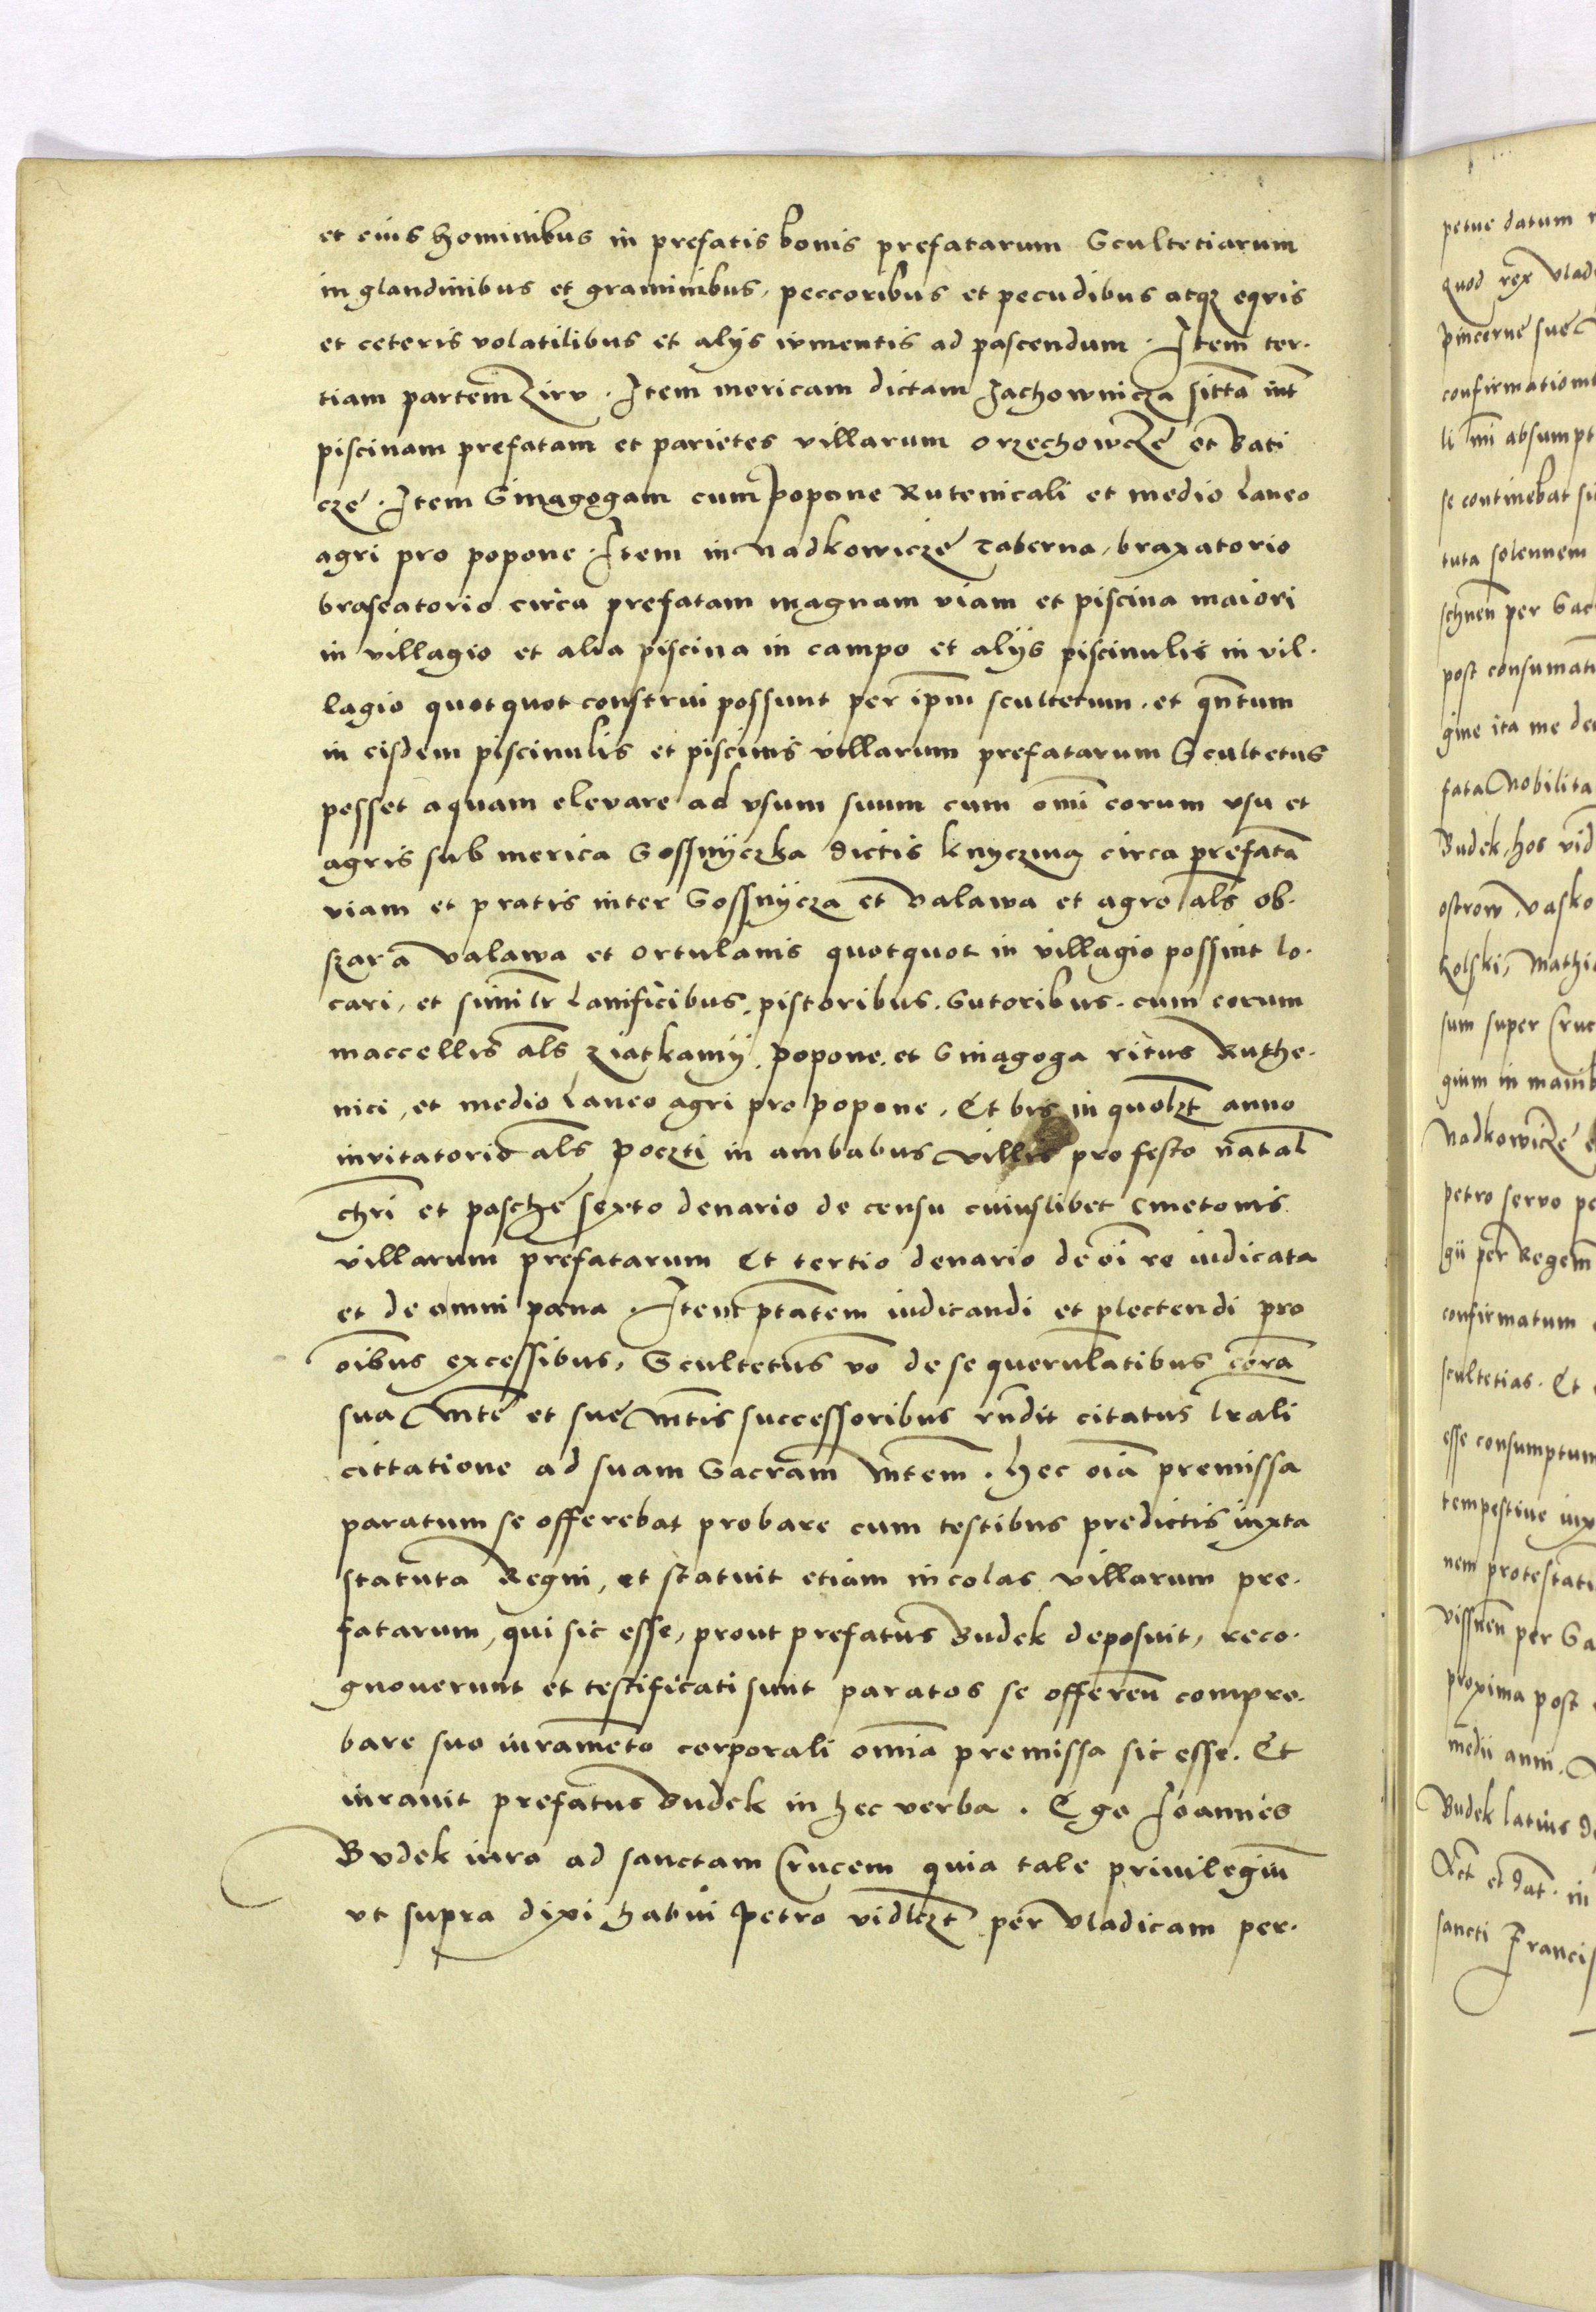 et eius hominibus in prefatis bonis prefatarum Scultetiarum
in glandinibus et graminibus, peccoribus et pecudibus atqȝ eqvis
et ceteris volatilibus et alÿs iumentis ad pascendum. Item ter-
tiam partem Zirv. Item mericam dictam Jachownicza sittā int̄
piscinam prefatam et parietes villarum Orzechowcze et Bati
cze. Item Sinagogam cum popone Rutenicali et medio Laneo
agri pro popone. Item in Nadkowicze Taberna, braxatorio
braseatorio circa prefatam magnam viam et piscina maiori
in villagio et alia piscina in campo et alÿs piscinulis in vil-
lagio quotquot construi possunt per ip̄m scultetum. et qn̄tum
in eisdem piscinulis et piscinis villarum prefatarum Scultetus
posset aquam elevare ad vsum suum cum om̄i eorum vsu et
agris sub merica Gossnÿczka dictis Knyczma circa prefatā
viam et pratis inter Gossnÿcza et Valawa et agro al̄s ob-
szarā Valawa et ortulanis quotquot in villagio possint lo-
cari, et simil̄r Lanificibus, pistoribus, Sutoribus, cum eorum
maccellis al̄s ziatkamÿ, popone, et Sinagoga ritus Ruthe-
nici, et medio Laneo agri pro popone, Et bis in quolȝt anno
invitatorio al̄s Poczti in ambabus villis pro festo natal̄
chr̄i et pasche sexto denario de censu cuiuslibet cmetonis
villarum prefatarum Et tertio denario de ōi re iudicata
et de omni pœna. Item ptātem iudicandi et plectendi pro
ōibus excessibus, Scultetus vō de se querulātibus corā
sua Mte et sue Mtis successoribus rn̄dit citatus lr̄ali
cittatione ad suam Sacram Mtem. Hec oīa premissa
paratum se offerebat probare cum testibus predictis iuxta
statuta Regni, et statuit etiam incolas villarum pre-
fatarum, qui sic esse, prout prefatus Budek deposuit, reco-
gnouerunt et testificati sunt paratos se offeren̄ compro-
bare suo iuramēto corporali omīa premissa sic esse. Et
iurauit prefatus Budek in hec verba. Ego Joannes
Bvdek iuro ad sanctam Crucem quia tale priuilegiū
vt supra dixi habui Petro vidlȝt per Vladicam per-
petue datum
quod rex Vlad
pincerne sue
confirmation
li mī absumpt
se continebat
tuta solennem
schnen̄ per Sac
post consumati
gine ita me de
fata Nobilita
Budek, hos vid
ostrow, Vasko
kolski, Mathi
sum super Cruc
gium in manib
Nadkowicze
petro servo pe
gii per Regem
confirmatum
scultetias. Et
esse consumptum
tempestive iux
nem protestati
vissnen̄ per Sa
proxima post
medii anni.
Budek latius d
Act̄ et dat̄. in
sancti Francis